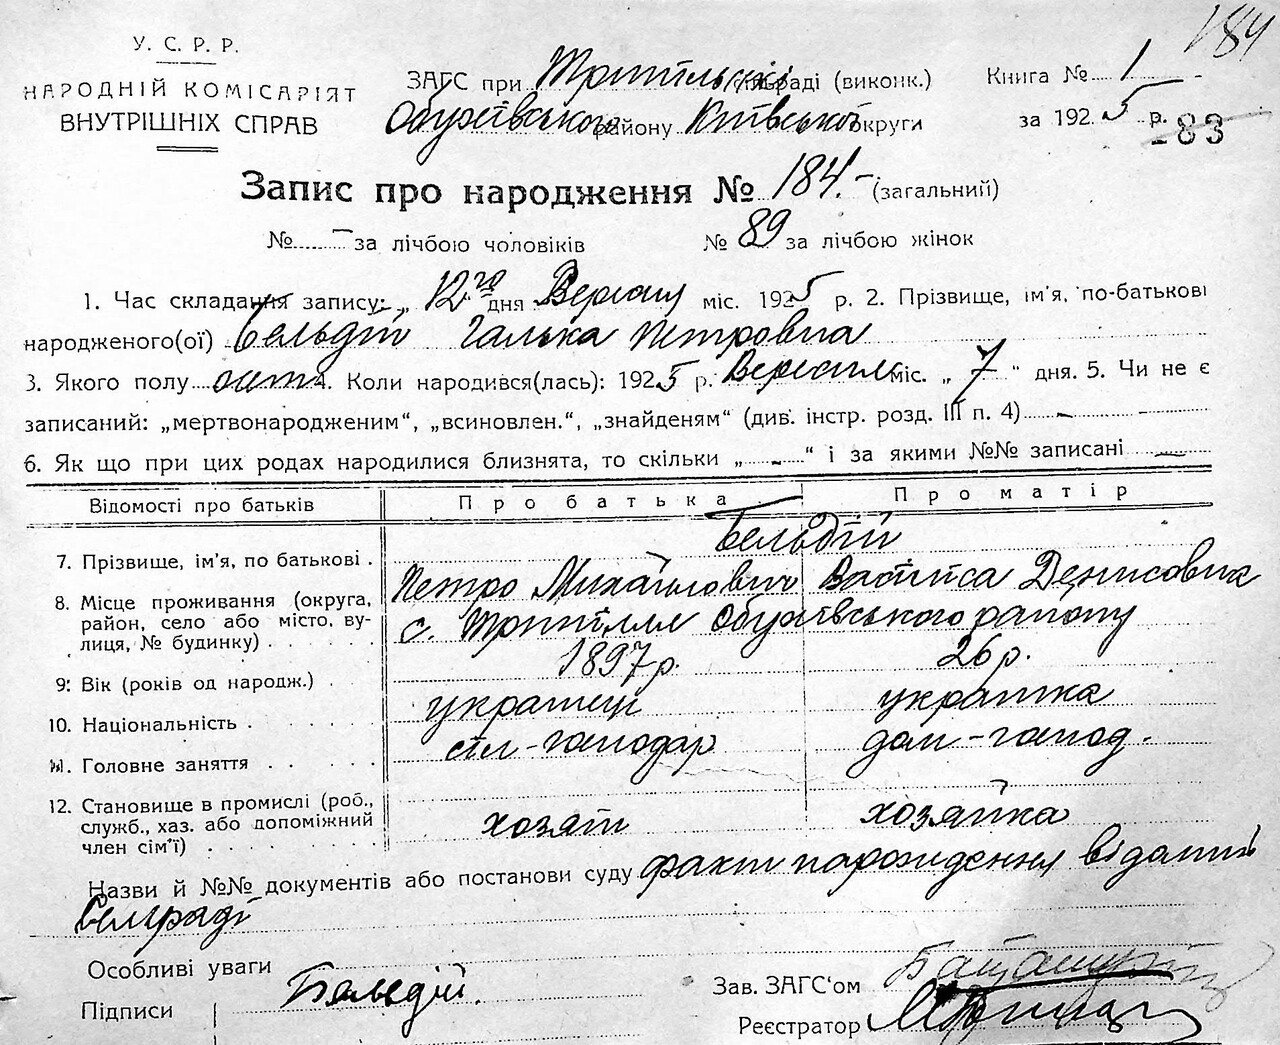 184
У. С. Р. Р.
НАРОДНІЙ КОМІСАРІЯТ
ВНУТРІШНІХ СПРАВ
ЗАГС при Трипільскі раді (виконк.)
Обухівського району Київської округи
Книга № 1
за 1925 р.
183
Запис про народження № 184.- (загальний)
№ - за лічбою чоловіків № 89 за лічбою жінок
1. Час складання запису: „ 12го дня Вересня міс. 1925 р. 2. Прізвище, ім'я, по-батькові
народженого(ої) Бельдій Галька Петровна
3. Якого полу 4. Коли народився(лась): 1925 р. Вересня міс. „ 7 “ дня. 5. Чи не є
записаний: „мертвонародженим“, „всиновлен.“, „знайденям“ (див. інстр. розд. III п. 4) -
6. Як що при цих родах народилися близнята, то скільки „ - “ і за якими №№ записані -
Відомості про батьків Про батька Про матір
7. Прізвище, ім'я, по батькові . Бельдій
Петро Михайлович Василиса Денисовна
8. Місце проживання (округа,
район, село або місто, ву-
лиця, № будинку) . . . . с. Трипілля Обухівського району
9. Вік (років од народж.) . 1897 р. 26 р.
10. Національність . . . . . украінец украінка
11. Головне заняття . . . . сіл-господар дом-господ.
12. Становище в промислі (роб.,
служб., хаз. або допоміжний
член сім'ї) . . . . . . . хозяїн хозяйка
Назви й №№ документів або постанови суду факт нарождения відомий
Сельраді
Особливі уваги
Підписи Бельдій.
Зав. ЗАГС'ом
Реєстратор